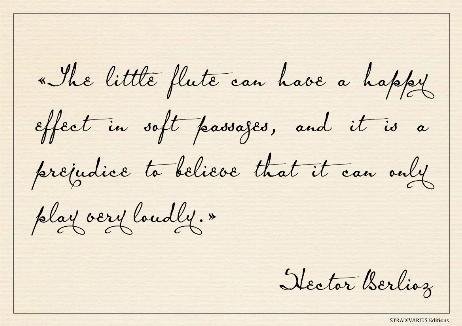 «The little flute can have a happy
effect in soft passages, and it is a
prejudice to believe that it can only
play very loudly.»
Hector Berlioz
STRADIVARIUS Editions